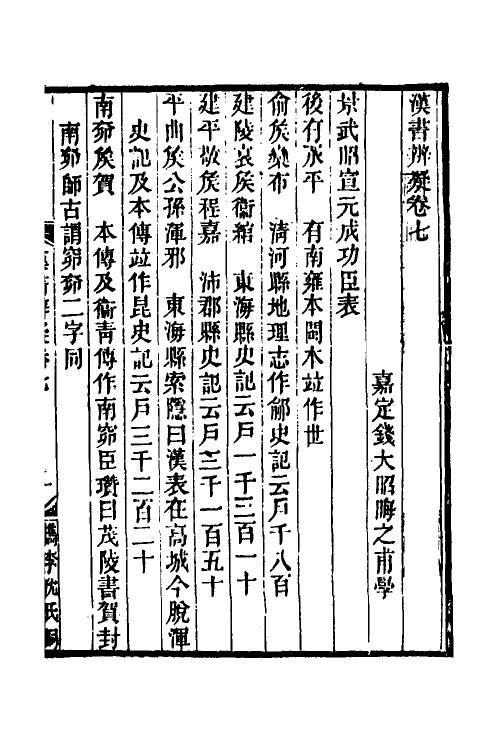 漢書辨疑卷七
嘉定錢大昭晦之甫學
景武昭宣元成功臣表
後有承平　有南雍本閩木竝作世
俞矦欒布　清河縣地理志作鄃史記云戶千八百
建陵哀矦衞綰　東海縣史記云戶一千三百一十
建平敬矦程嘉　沛郡縣史記云戶三千一百五十
平曲矦公孫渾邪　東海縣索隱曰漢表在高城今脫渾
史記及本傳竝作昆史記云戶三千二百二十
南奅矦賀　本傳及衞青傳作南窌臣瓚曰茂陵書賀封
南奅師古謂窌奅二字同
李沈氏